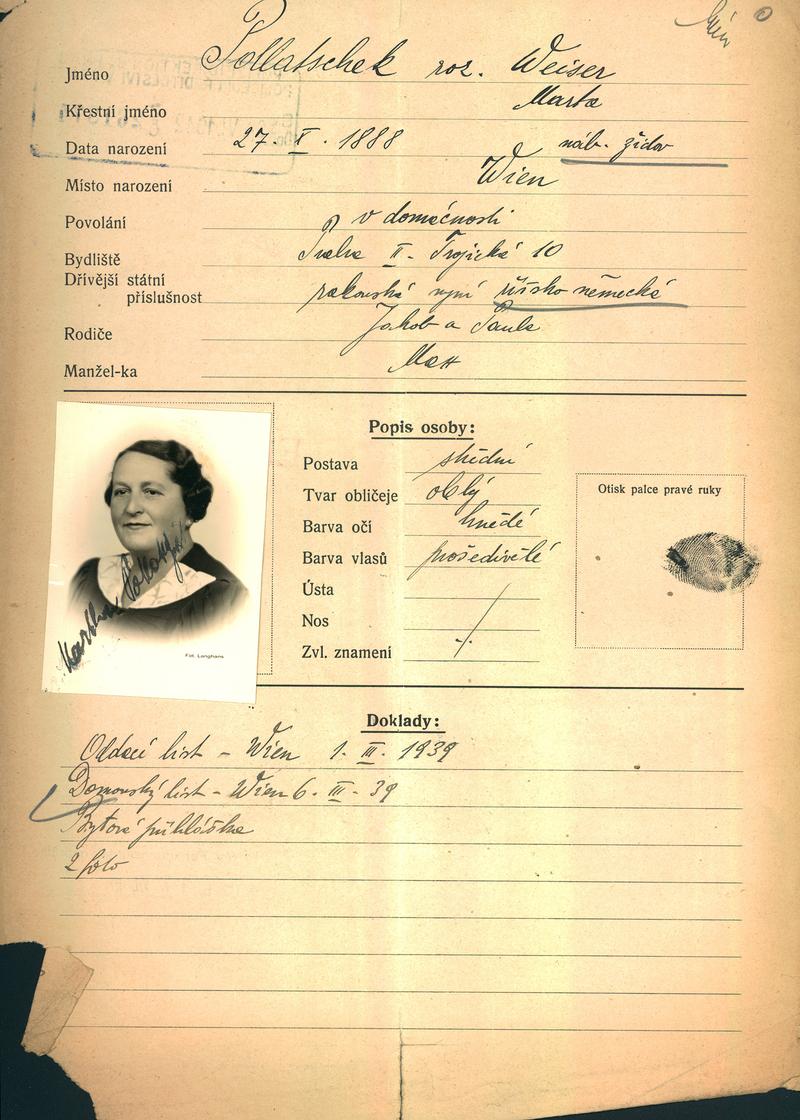 Jméno Pollatschek roz. Weiser
Křestní jméno Marta
Data narození 27. X. 1888 náb. židov
Místo narození Wien
Povolání v domácnosti
Bydliště Praha II - Trojická 10
Dřívější státní
příslušnost rakouská nyní říšsko německá
Rodiče Jakob a Paula
Manžel-ka Max
Popis osoby:
Postava střední
Tvar obličeje oblý
Barva očí hnědé
Barva vlasů prošedivělé
Ústa
Nos
Zvl. znamení
Otisk palce pravé ruky
Martha
Fot. Langhans
Doklady:
Oddací list - Wien 1. III. 1939
Domovský list - Wien 6. III - 39
Bytová přihláška
2 foto